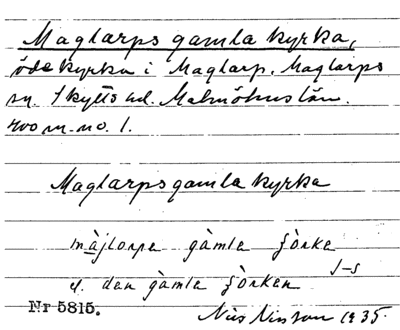 Maglarps gamla kyrka,
ödekyrka i Maglarp. Maglarps
sn. Skytts hd. Malmöhus län.
400 m. no. 1.
Maglarps gamla kyrka
màjlorpa gàmla ʃörka
el. den gàmla ʃörkan
Nr 5815.
Nils Nilsson 1935.